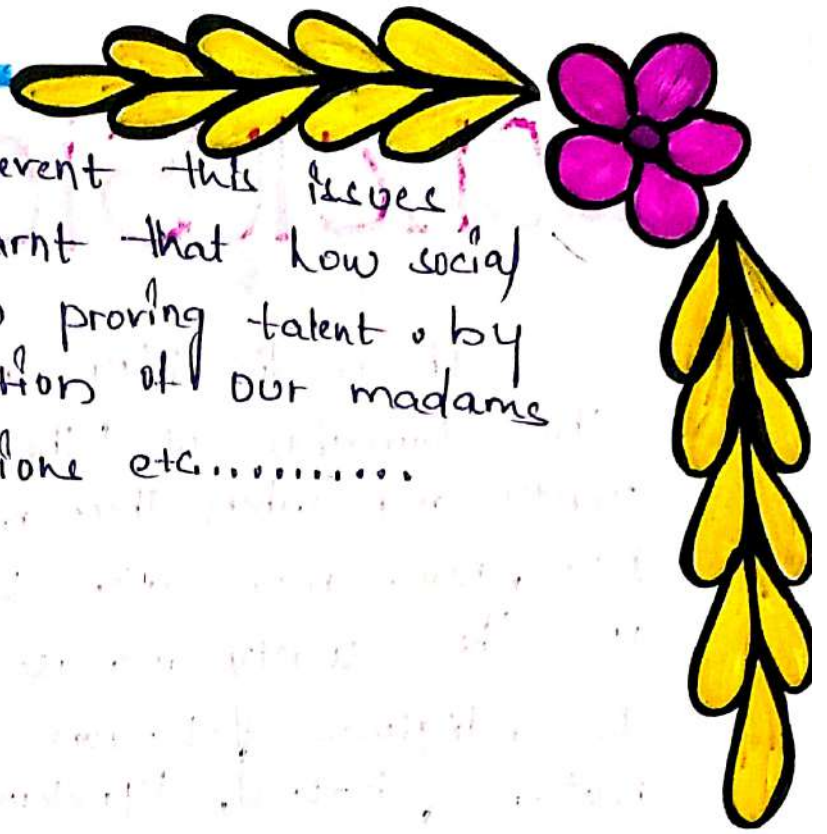 event this issues
arnt that how social
proving talent. by
tion of our madams
ions etc...........